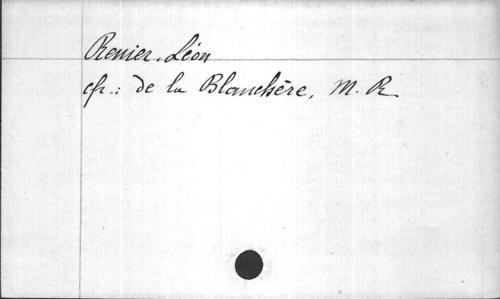 Renier, Léon
cfr.: de la Blanchère, M. R.